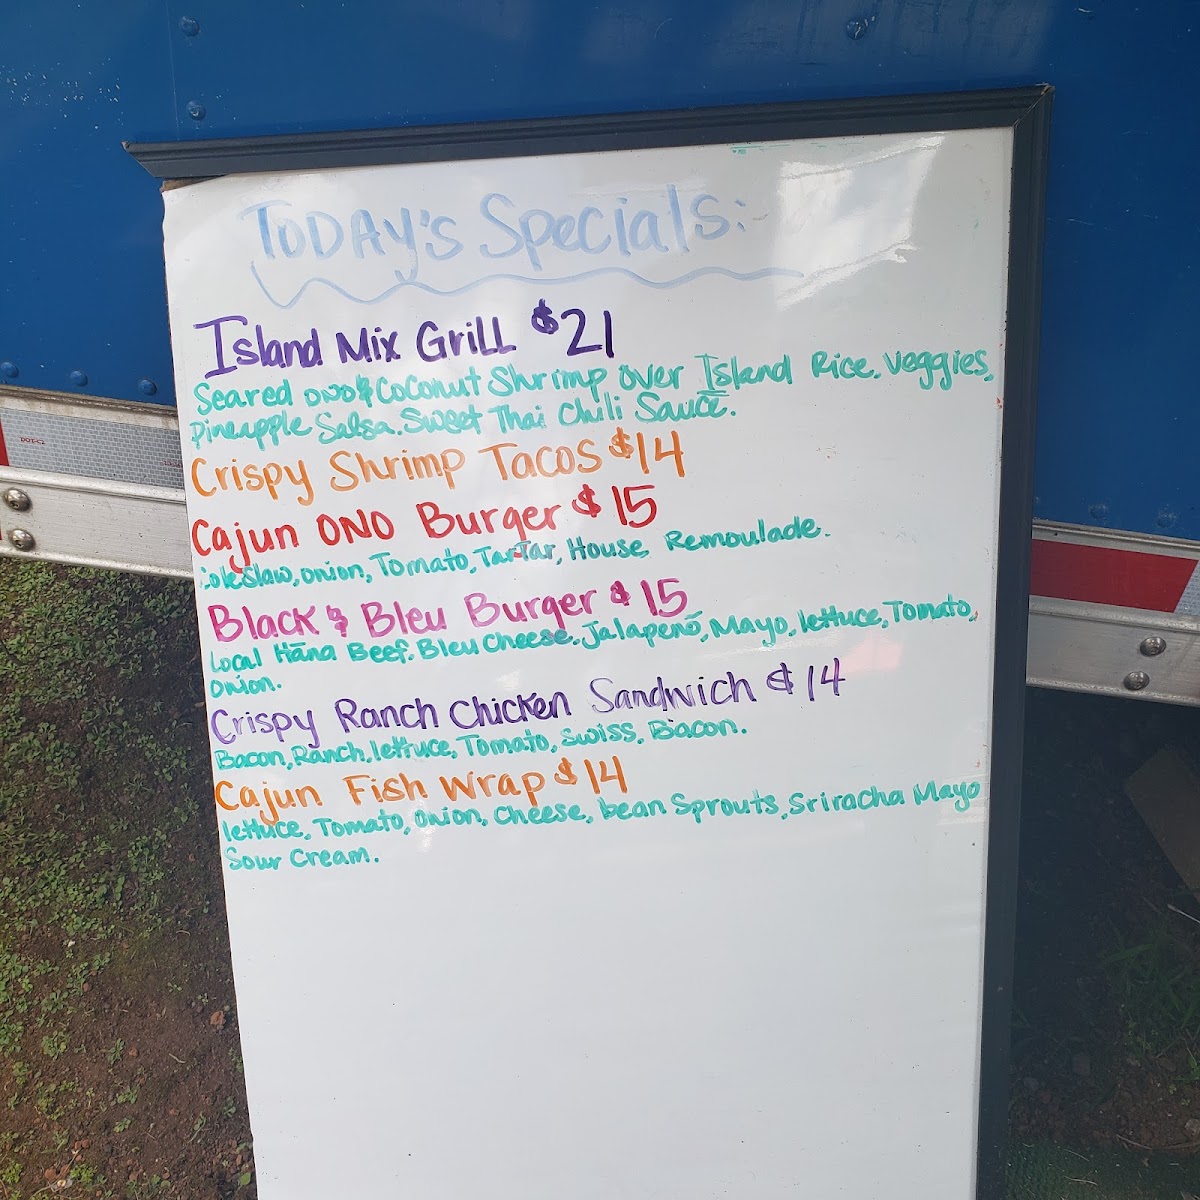 TODAY's Specials:
Island Mix GriLL $21
Seared ONO & Coconut Shrimp over Island Rice. veggies,
Pineapple Salsa. Sweet Thai Chili Sauce.
Crispy Shrimp Tacos $14
Cajun ONO Burger $15
Coleslaw, onion, Tomato, TarTar, House Remoulade.
Black & Bleu Burger $15
Local Hāna Beef. Bleu Cheese. Jalapeño, Mayo, lettuce, Tomato,
Onion.
Crispy Ranch Chicken Sandwich $14
Bacon, Ranch, lettuce, Tomato, Swiss, Bacon.
Cajun Fish Wrap $14
lettuce, Tomato, onion, Cheese, bean Sprouts, Sriracha Mayo
Sour Cream.